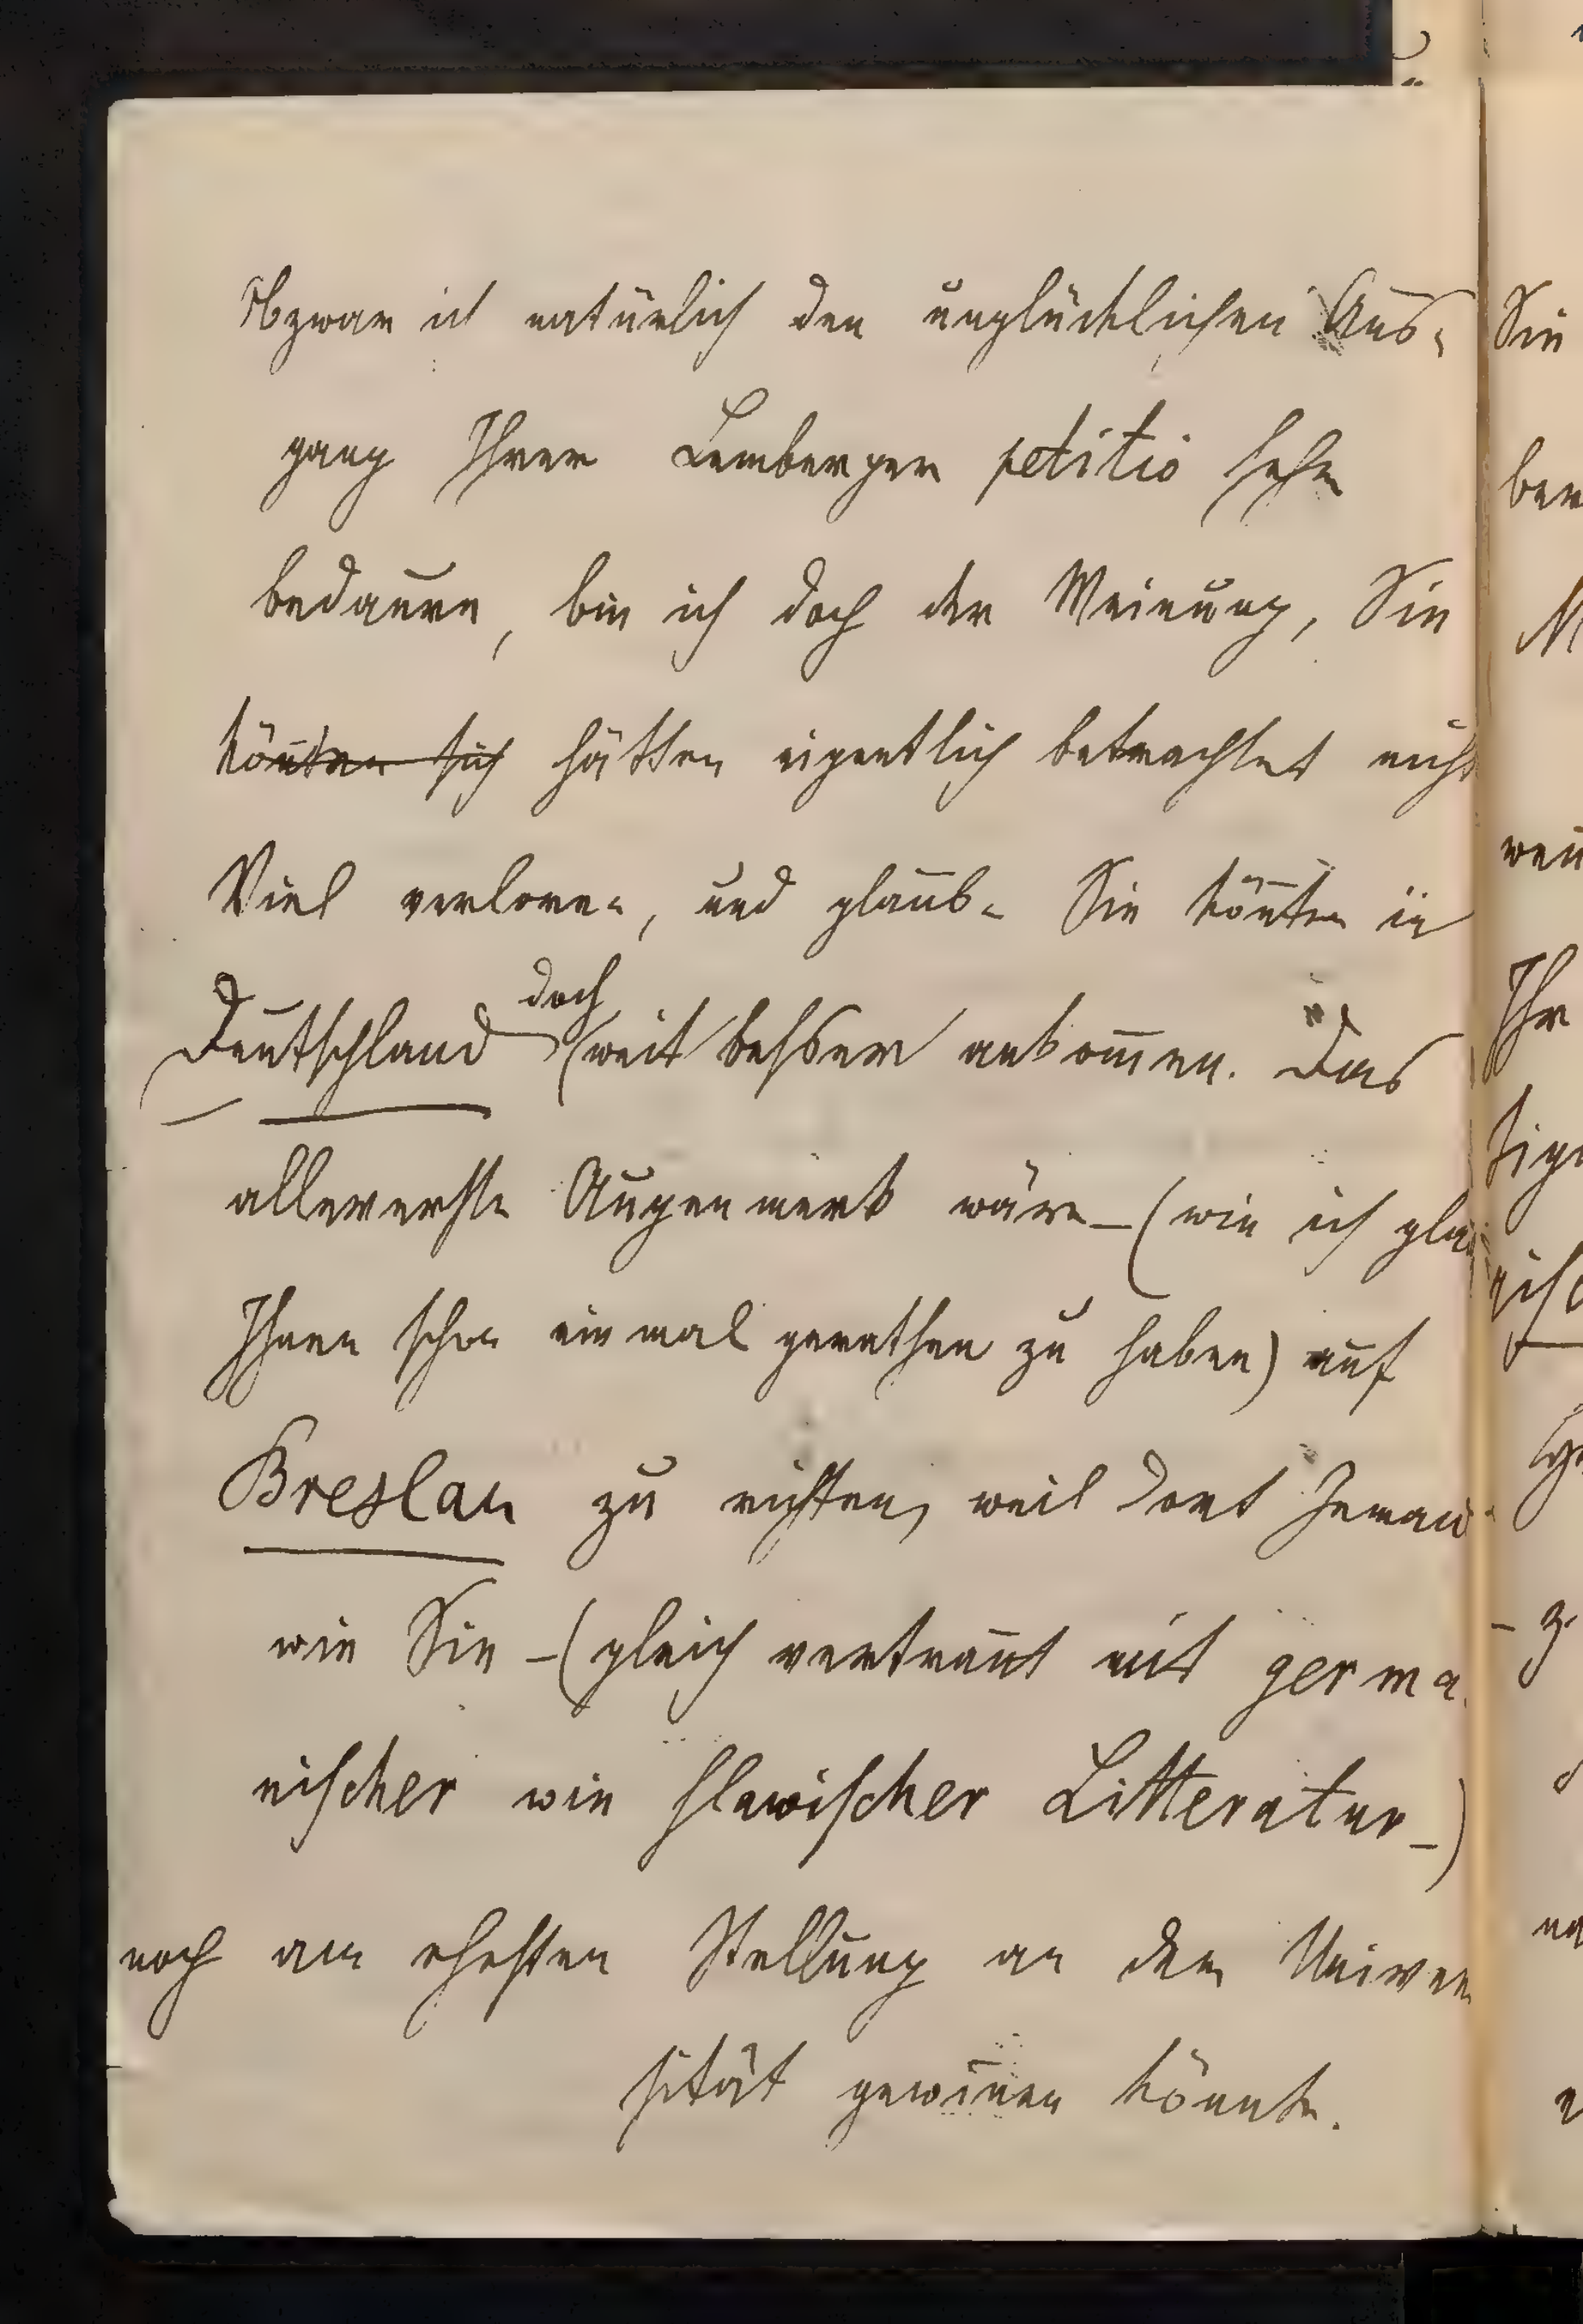 Obzwar ich natürlich den unglücklichen Aus-
gang Ihrer Lemberger petitio sehr
bedaure, bin ich doch der Meinung, Sie
könnten sich hätten eigentlich betrachtet nicht
Viel verloren, und glaube Sie könnten in
doch
Deutschland weit besser ankommen. Das
allererste Augenmerk wäre – (wie ich glau
Ihnen schon einmal gerathen zu haben) auf
Breslau zu richten, weil dort Jeman
wie Sie – (gleich vertraut mit germa
nischer wie slawischer Litteratur –)
noch am ehesten Stellung an der Univer
sität gewinnen könnte.
Sie
ber
M
wen
Ihr